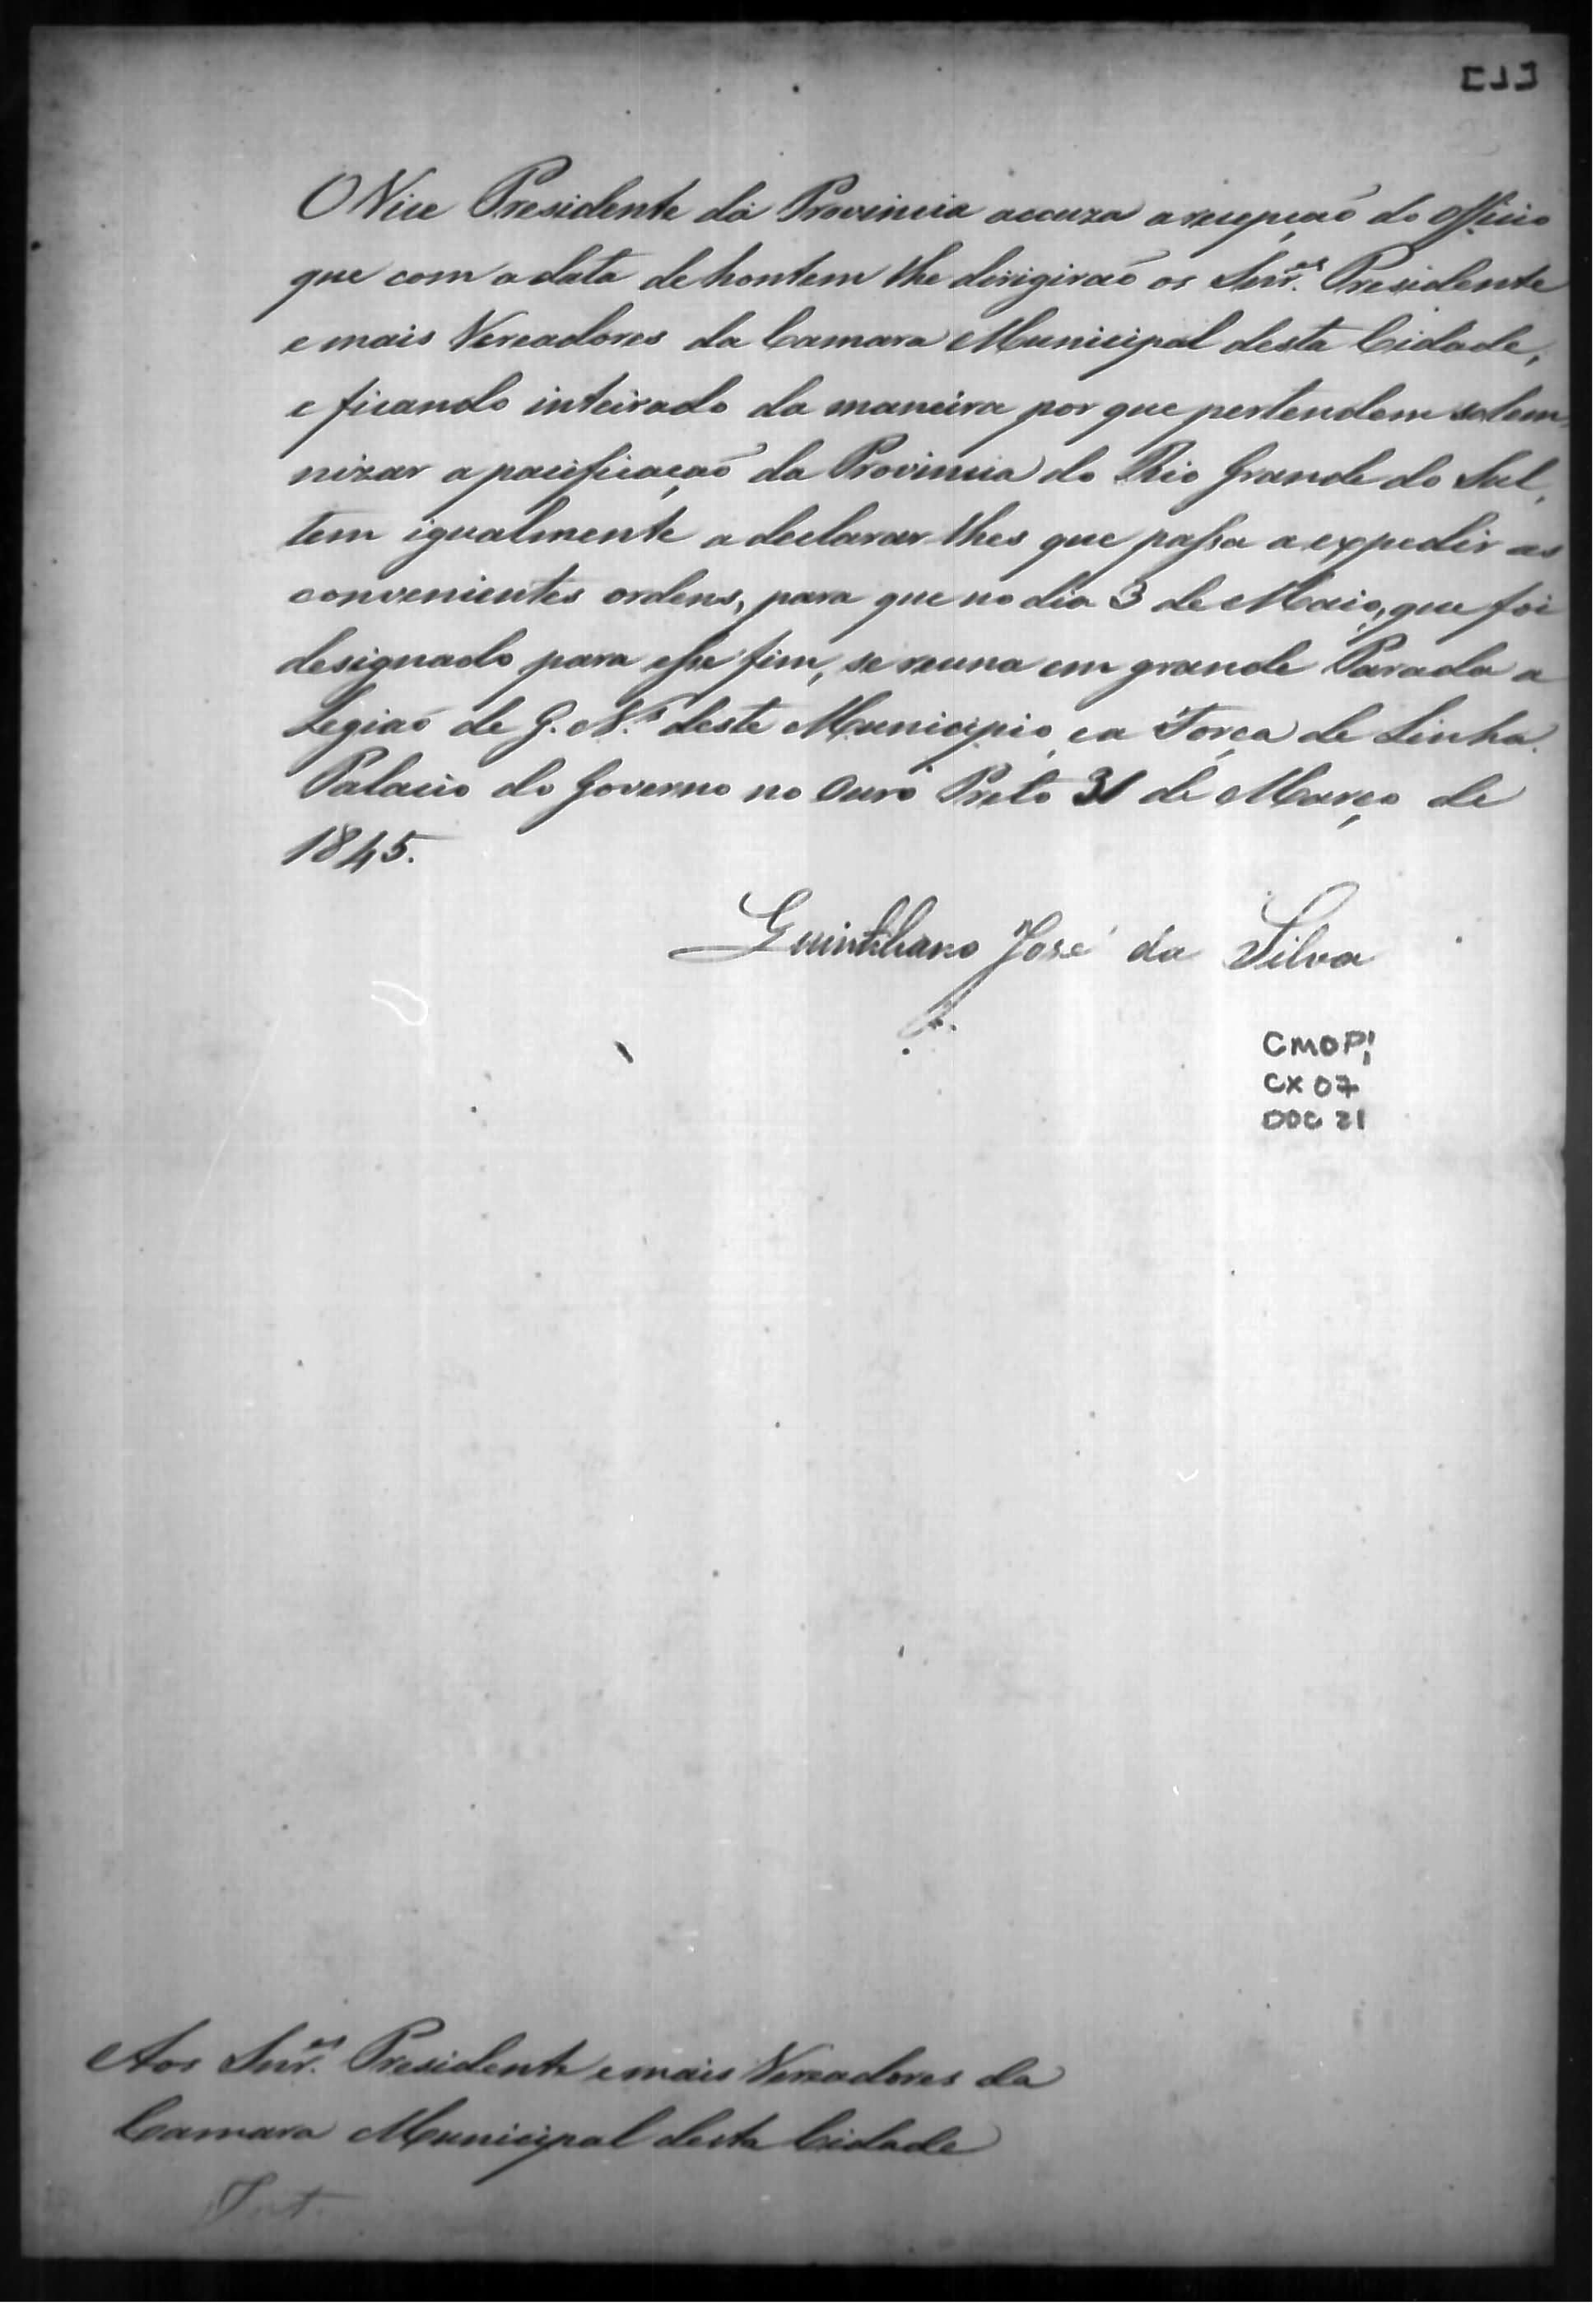 [1]
O Vice Presidente da Provincia accuza a recepçaõ do Officio
que com a data de hontem lhe dirigiraõ os Snr.es Presidente
e mais Vereadores da Camara Municipal desta Cidade,
e ficando inteirado da maneira por que pertendem solem
nizar a pacificaçaõ da Provincia do Rio Grande do Sul,
tem igualmente a declarar lhes que passa a expedir as
convenientes ordens, para que no dia 3 de Maio, que foi
designado para esse fim, se reuna em grande Parada a
Legiaõ de G. N.s deste Municipio, e a Força de Linha.
Palacio do Governo no Ouro Preto 31 de Março de
1845.
Quintiliano José da Silva
CMOP
CX 07
DOC 21
Aos Snr.es Presidente e mais Vereadores da
Camara Municipal desta Cidade